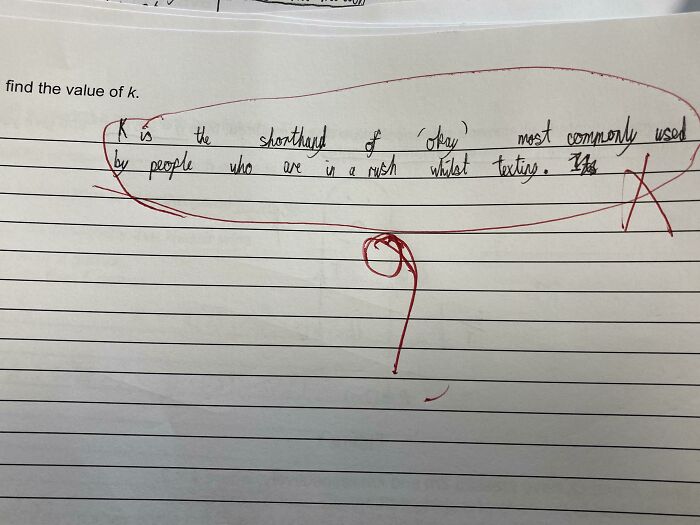 find the value of k.
K is the shorthand of 'okay' most commonly used
by people who are in a rush whilst texting.